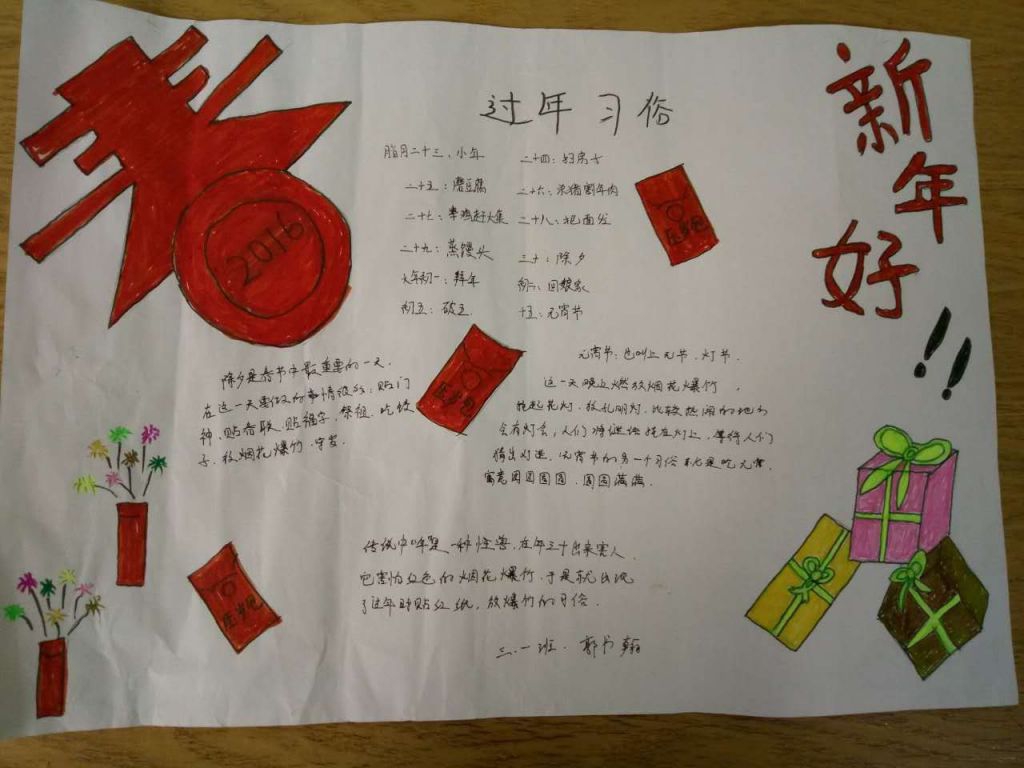 春
2016
新年好!!
过年习俗
腊月二十三、小年 二十四：扫房子
二十五：磨豆腐 二十六：杀猪割年肉
二十七：宰鸡赶大集 二十八：把面发
二十九：蒸馒头 三十：除夕
大年初一：拜年 初二：回娘家
初五：破五 十五：元宵节
压岁包
压岁包
压岁包
除夕是春节中最重要的一天.
在这一天要做的事情很多：贴门
神、贴春联、贴福字、祭祖、吃饺
子、放烟花爆竹、守岁.
元宵节：也叫上元节、灯节.
这一天晚上燃放烟花爆竹，
挂起花灯、放孔明灯、比较热闹的地方
会有灯会，人们将谜语挂在灯上，等待人们
猜出灯迷、元宵节的另一个习俗就是吃元宵.
寓意团团圆圆、圆圆满满.
传说中年是一种怪兽、在年三十出来害人
它害怕红色的烟花爆竹、于是就出现
了过年时贴红纸、放爆竹的习俗.
三.一班. 郭书翰